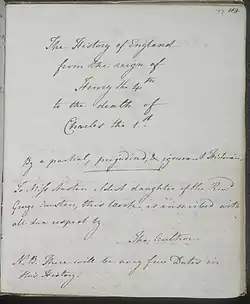 103
The History of England
from the reign of
Henry the 4th
to the death of
Charles the 1st.
By a partial, prejudiced, & ignorant Historian.
To Miss Austen eldest daughter of the Revd
George Austen, this Work is inscribed with
all due respect by
The Author
N.B. There will be very few Dates in
this History.